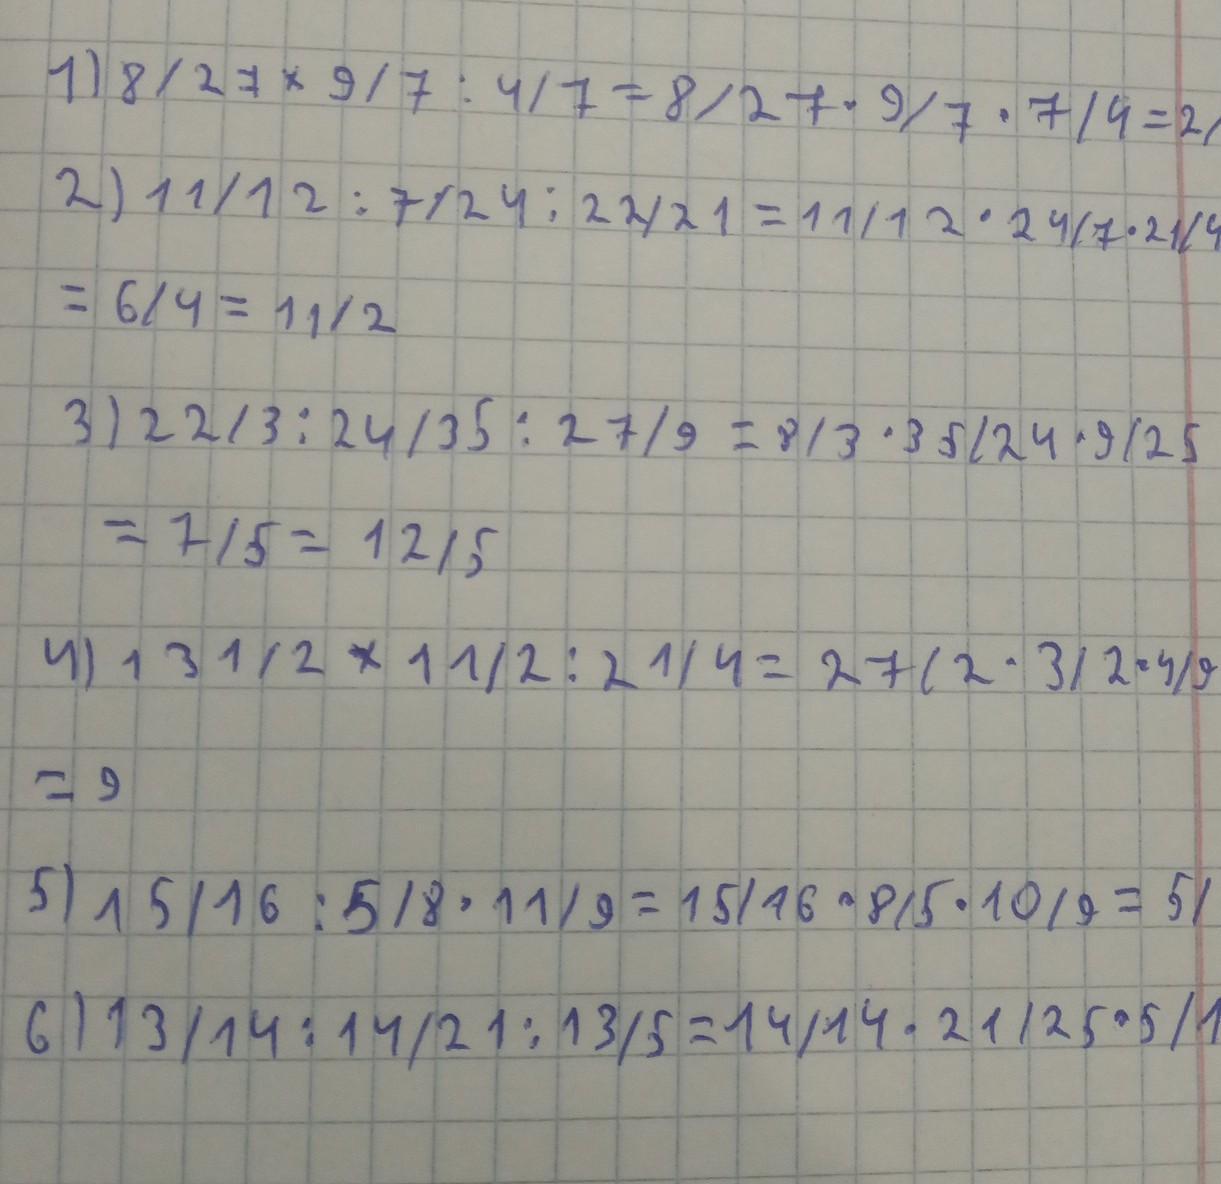 1) 8/27 × 9/7 : 4/7 = 8/27 · 9/7 · 7/4 = 2/
2) 11/12 : 7/24 : 22/21 = 11/12 · 24/7 · 21/4
= 6/4 = 11/2
3) 22/3 : 24/35 : 27/9 = 8/3 · 35/24 · 9/25
= 7/5 = 12/5
4) 131/2 × 11/2 : 21/4 = 27/2 · 3/2 · 4/9
= 9
5) 15/16 : 5/8 · 11/9 = 15/16 · 8/5 · 10/9 = 5/
6) 13/14 : 14/21 : 13/5 = 14/14 · 21/25 · 5/1